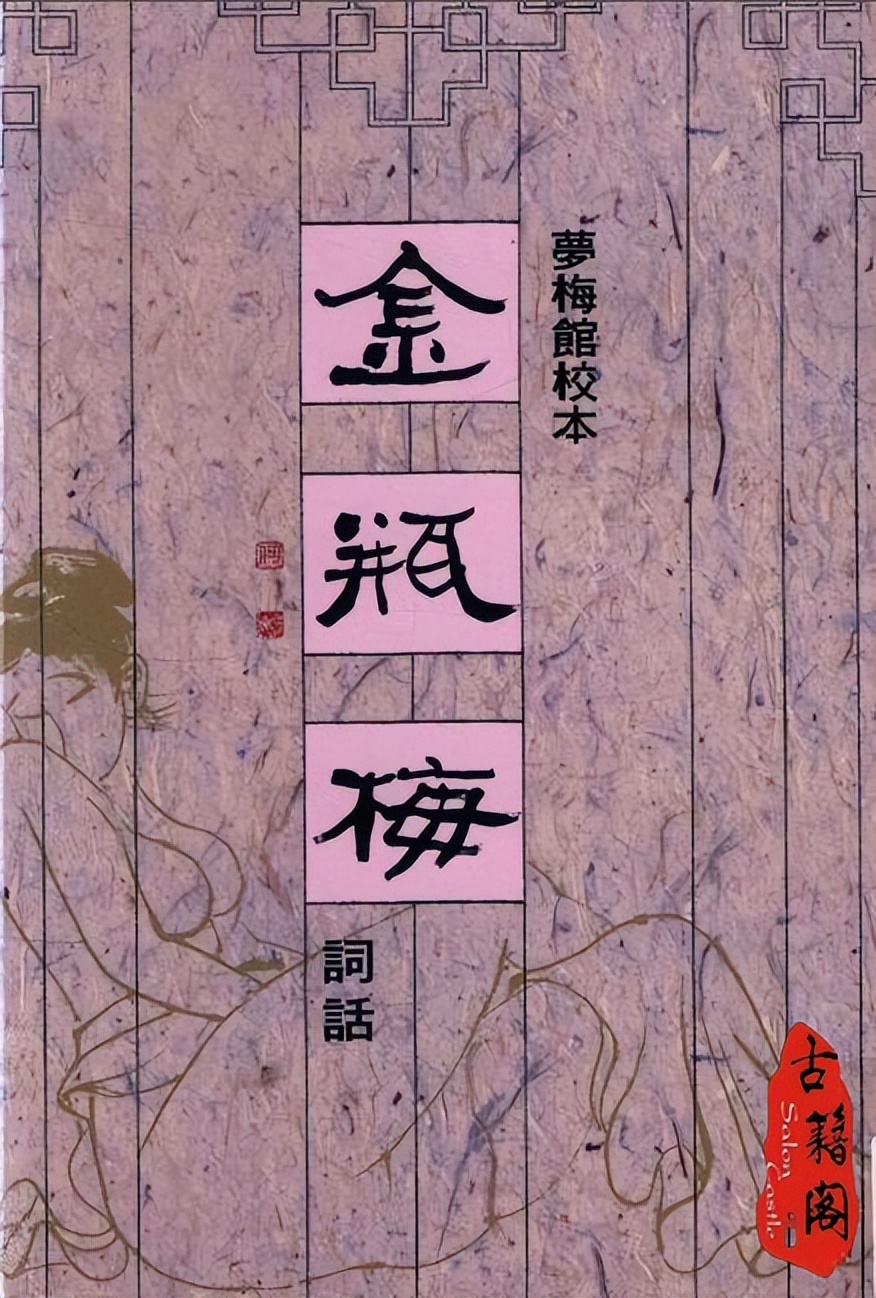 夢梅館校本
金瓶梅
詞話
古籍阁
Salon Castle